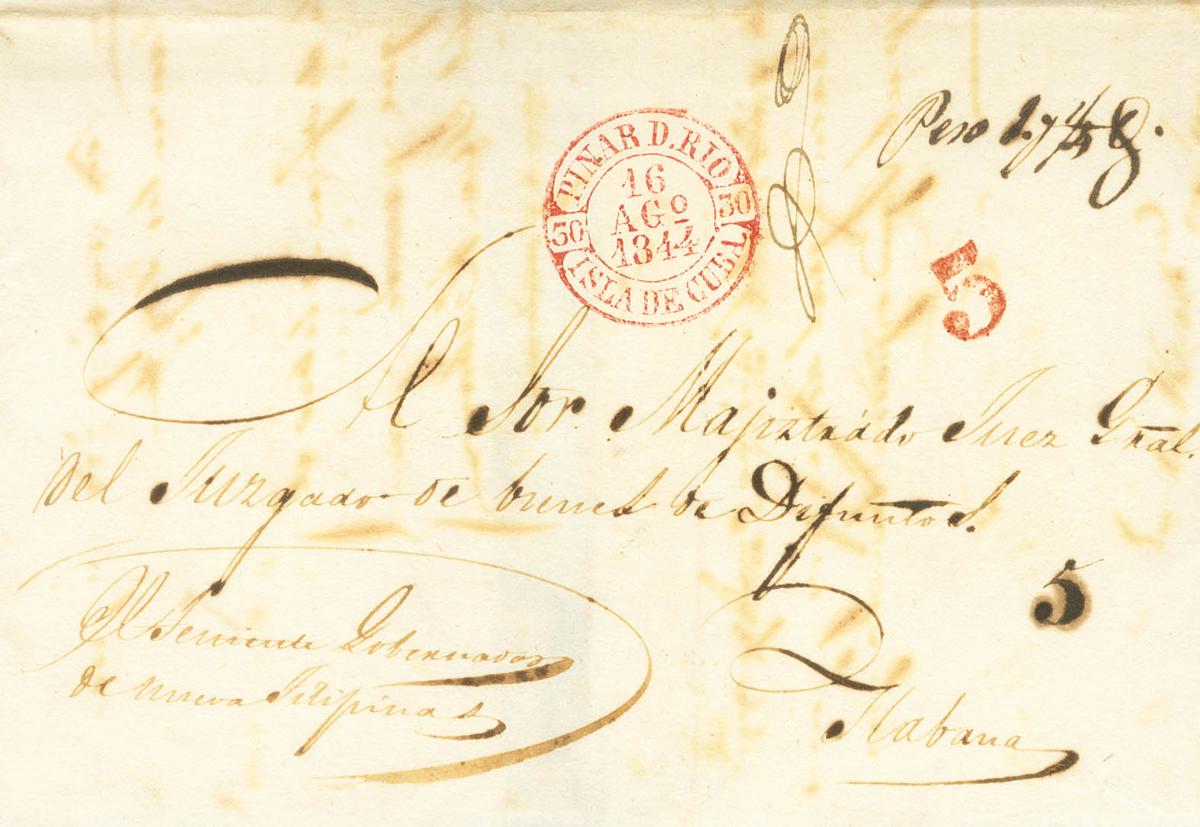 Peso
PINAR D. RIO
30
30
16
AGº
1844
ISLA DE CUBA
5
Al Sor. Majistrádo Juez Gñal.
del Juzgado de bienes de Difuntos.
5
El Teniente Gobernador
de nueva Filipinas
Habana